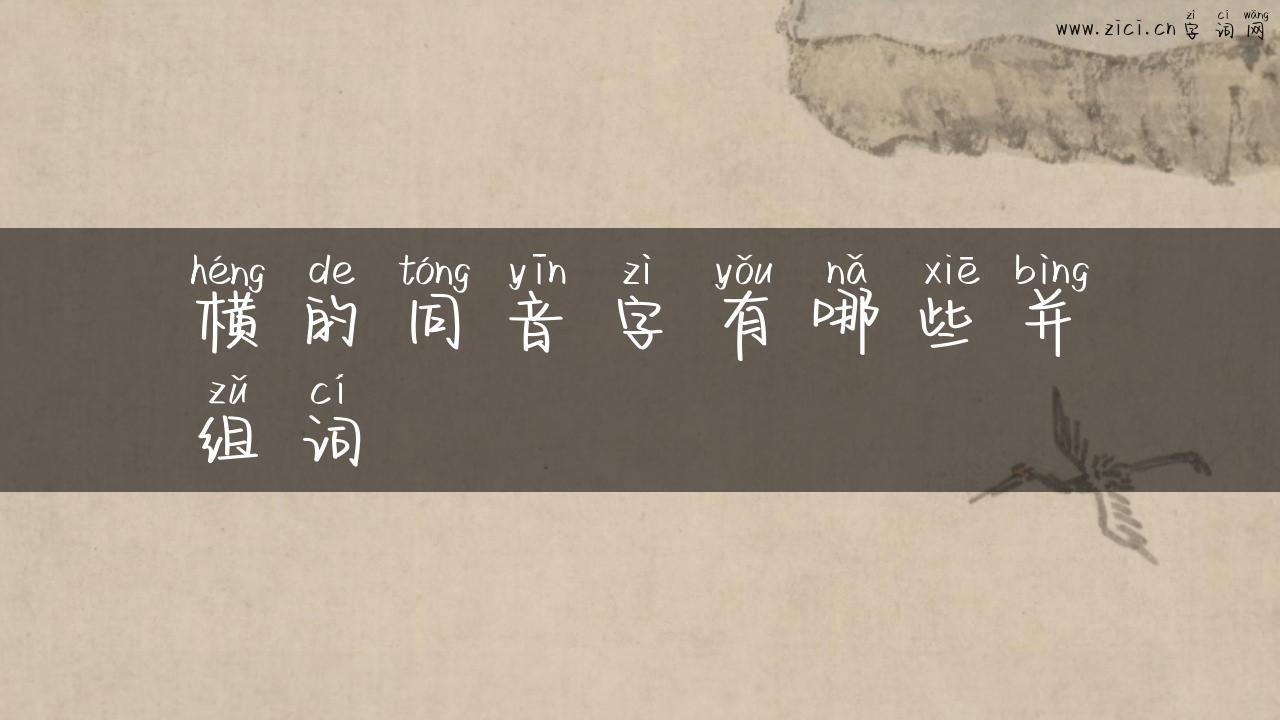 zì cí wǎng
www.zici.cn 字 词 网
héng de tóng yīn zì yǒu nǎ xiē bìng
横 的 同 音 字 有 哪 些 并
zǔ cí
组 词